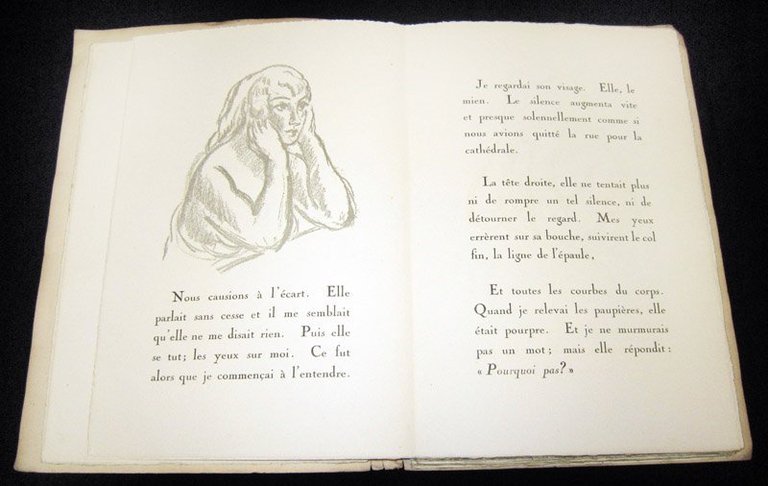 Nous causions à l'écart. Elle
parlait sans cesse et il me semblait
qu'elle ne me disait rien. Puis elle
se tut; les yeux sur moi. Ce fut
alors que je commençai à l'entendre.
Je regardai son visage. Elle, le
mien. Le silence augmenta vite
et presque solennellement comme si
nous avions quitté la rue pour la
cathédrale.
La tête droite, elle ne tentait plus
ni de rompre un tel silence, ni de
détourner le regard. Mes yeux
errèrent sur sa bouche, suivirent le col
fin, la ligne de l'épaule,
Et toutes les courbes du corps.
Quand je relevai les paupières, elle
était pourpre. Et je ne murmurais
pas un mot; mais elle répondit:
« Pourquoi pas? »